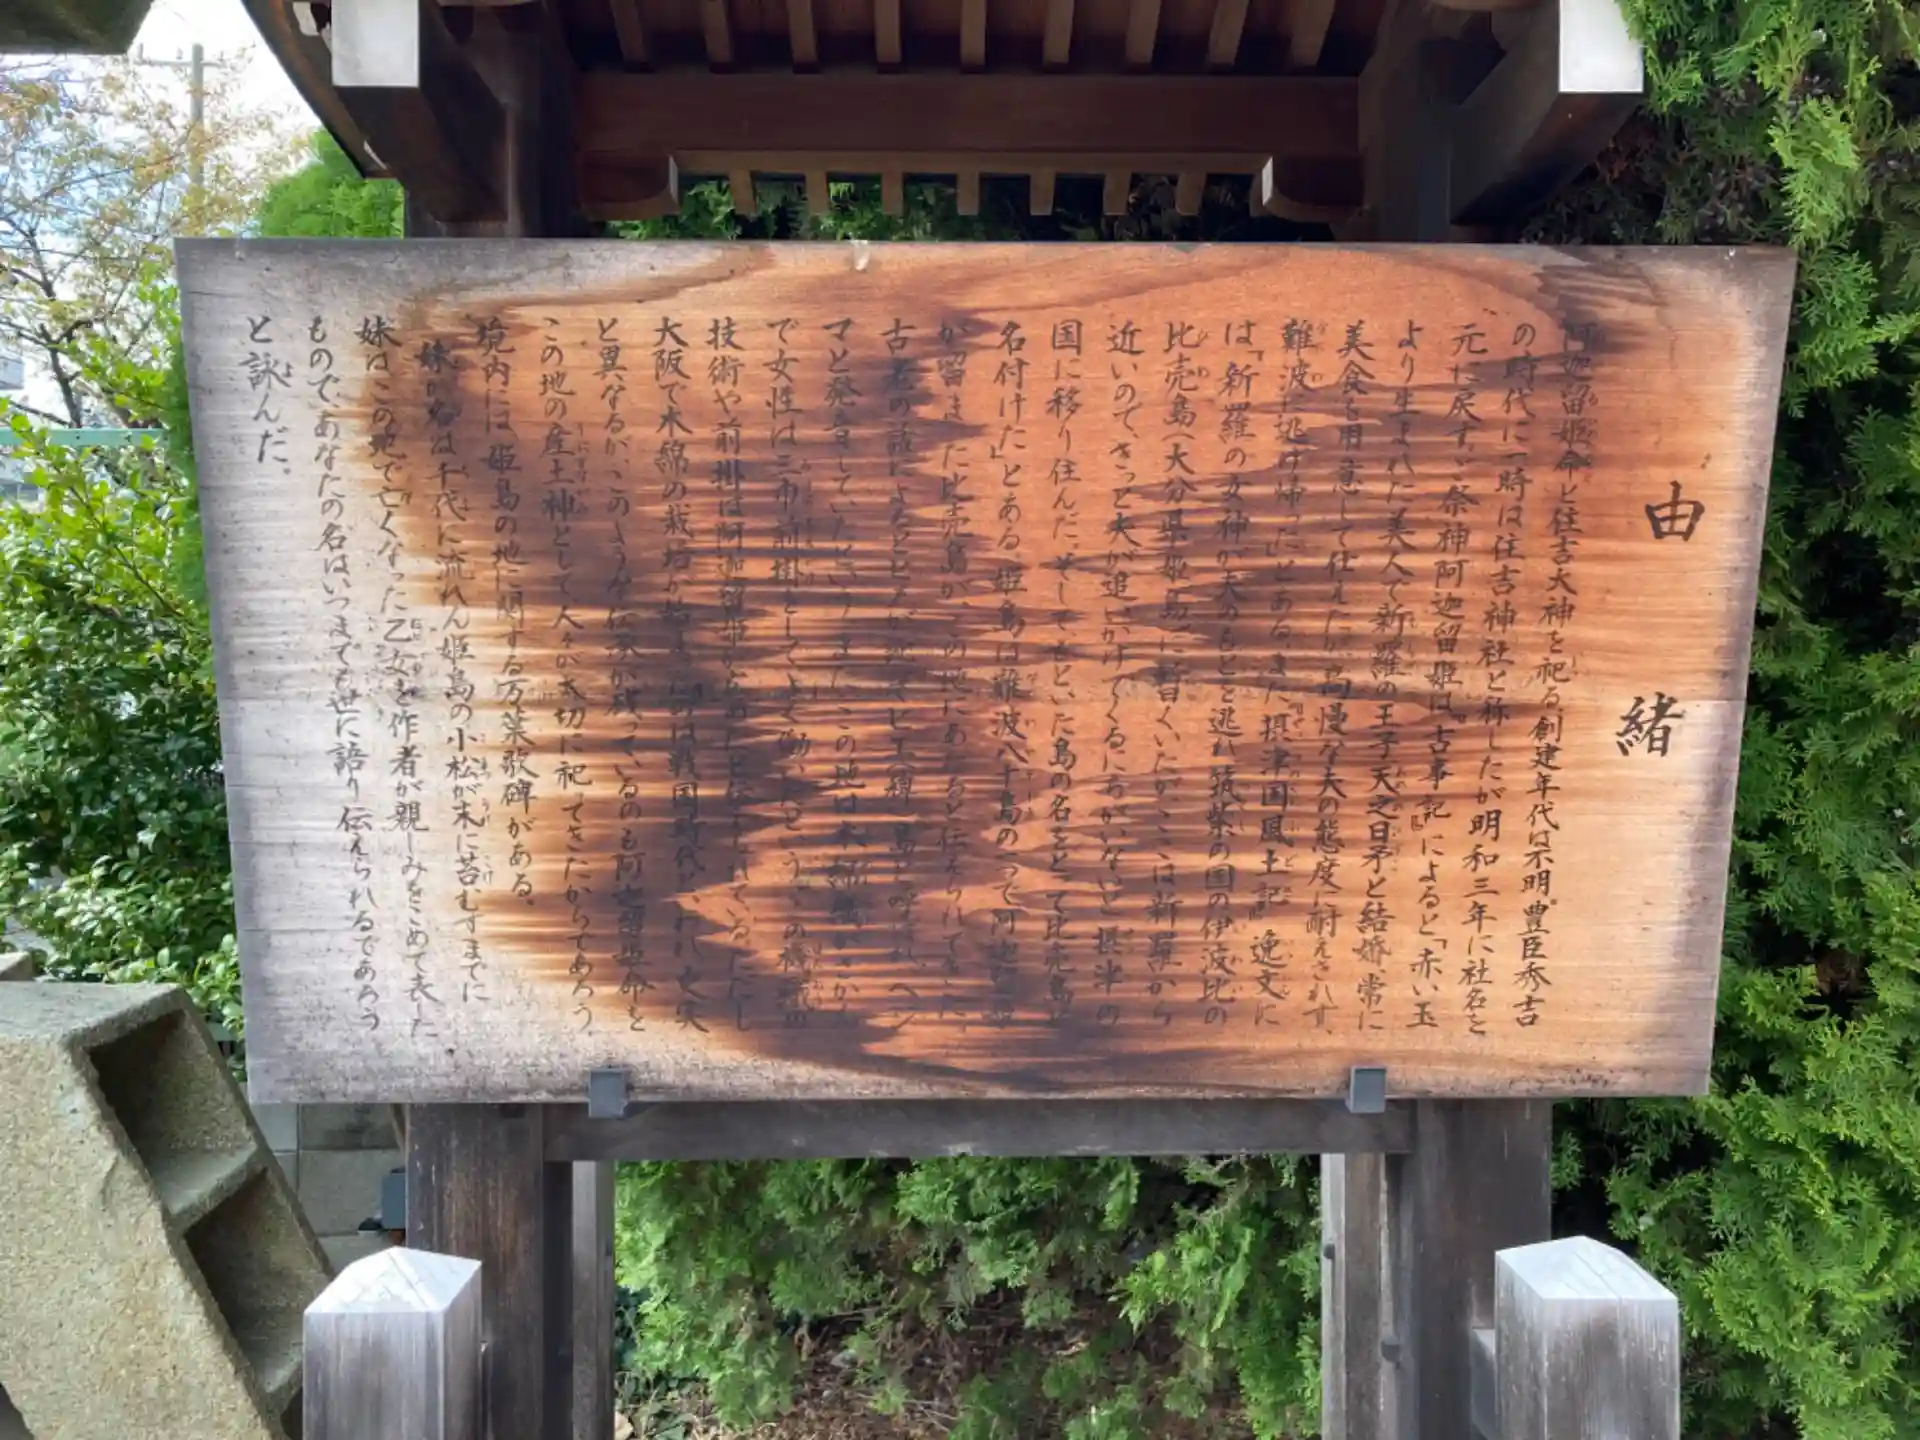 由緒
阿迦留姫命と住吉大神を祀る創建年代は不明。豊臣秀吉
の時代に一時は住吉神社と称したが明和三年に社名を
元に戻す。祭神阿迦留姫は『古事記』によると「赤い玉
より生まれた美人で新羅の王子天之日矛と結婚、常に
美食を用意して仕えたが高慢な夫の態度に耐えきれず、
難波に逃げ帰った」とある。また『摂津国風土記』逸文に
は「新羅の女神が夫のもとを逃れ筑紫の国の伊波比の
比売島(大分県姫島)に暫くいたが、ここは新羅から
近いので、きっと夫が追いかけてくるにちがいないと摂津の
国に移り住んだ。そして、もといた島の名をとって比売島と
名付けた」とある。姫島は難波八十島の一つで阿迦留姫
が留まった比売島が、この地にあたると伝えられてきた。
古老の話によるとヒメ
マと発音していたという。またこの地は
で女性は三巾前掛をしてよく働いたという。この機織の
技術や前掛は阿迦留姫から
大阪で木綿の栽培が始まったのは戦国時代といわれ史実
と異なるが、このような伝承が残っているのも阿迦留姫命を
この地の産土神として、人々が大切に祀ってきたからであろう。
境内には姫島の地に関する万葉歌碑がある。
妹が名は千代に流れん姫島の小松が末に苔むすまでに
妹はこの地で亡くなった乙女を作者が親しみをこめて表した
もので、あなたの名はいつまでも世に語り伝えられるであろう
と詠んだ。